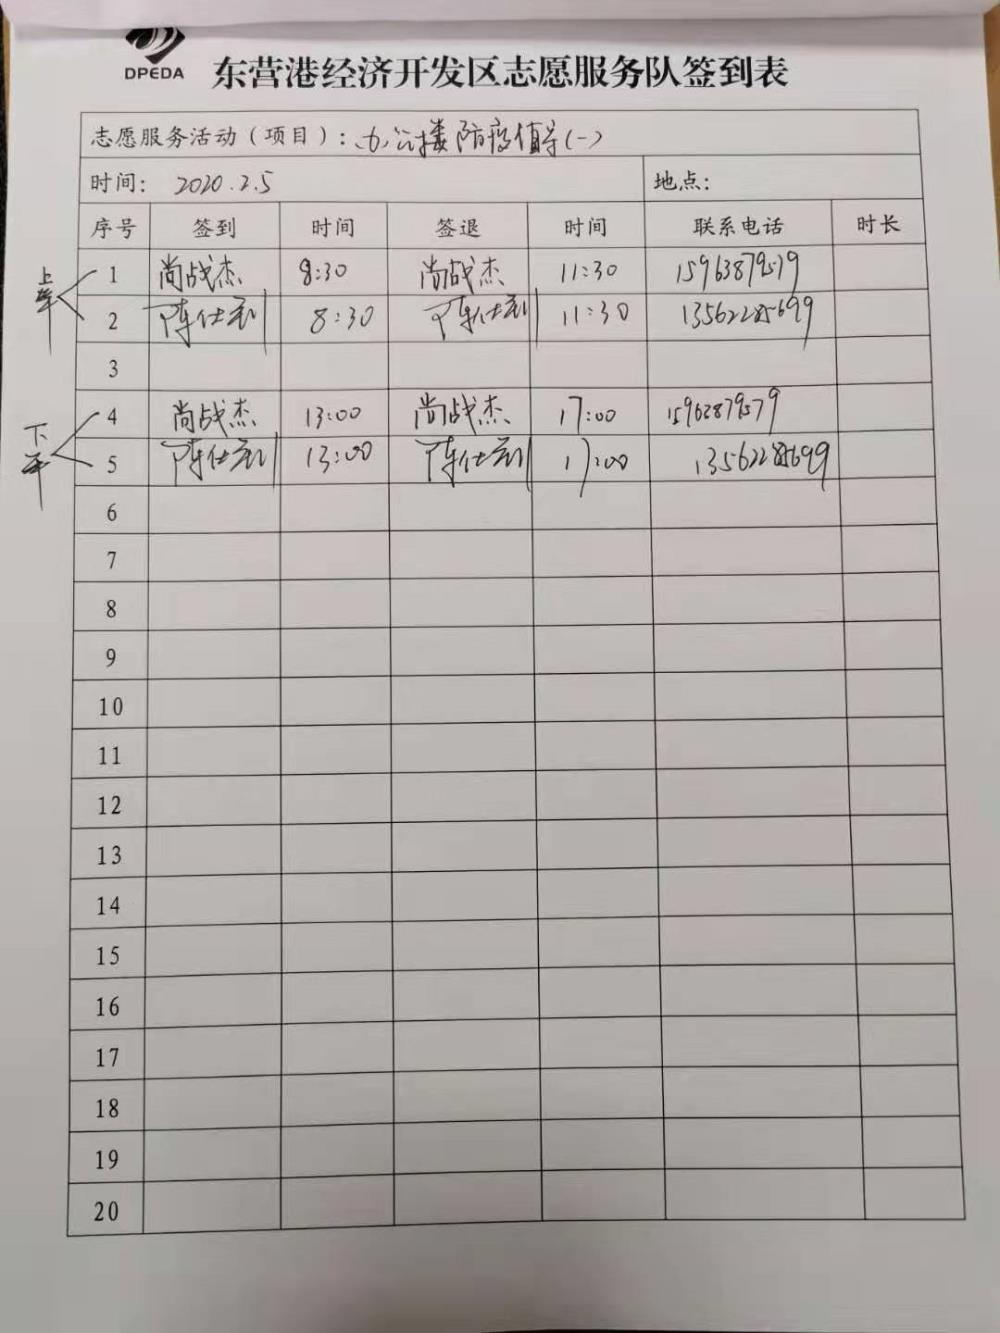 DPEDA
东营港经济开发区志愿服务队签到表
志愿服务活动（项目）：办公楼防疫值守(一)
时间： 2020.2.5 地点：
序号 签到 时间 签退 时间 联系电话 时长
上午
1 尚战杰 8:30 尚战杰 11:30 15963879579
2 陈仕 8:30 陈仕 11:30 13562285699
3
下午
4 尚战杰 13:00 尚战杰 17:00 15963879579
5 陈仕 13:00 陈仕 17:00 13562285699
6
7
8
9
10
11
12
13
14
15
16
17
18
19
20